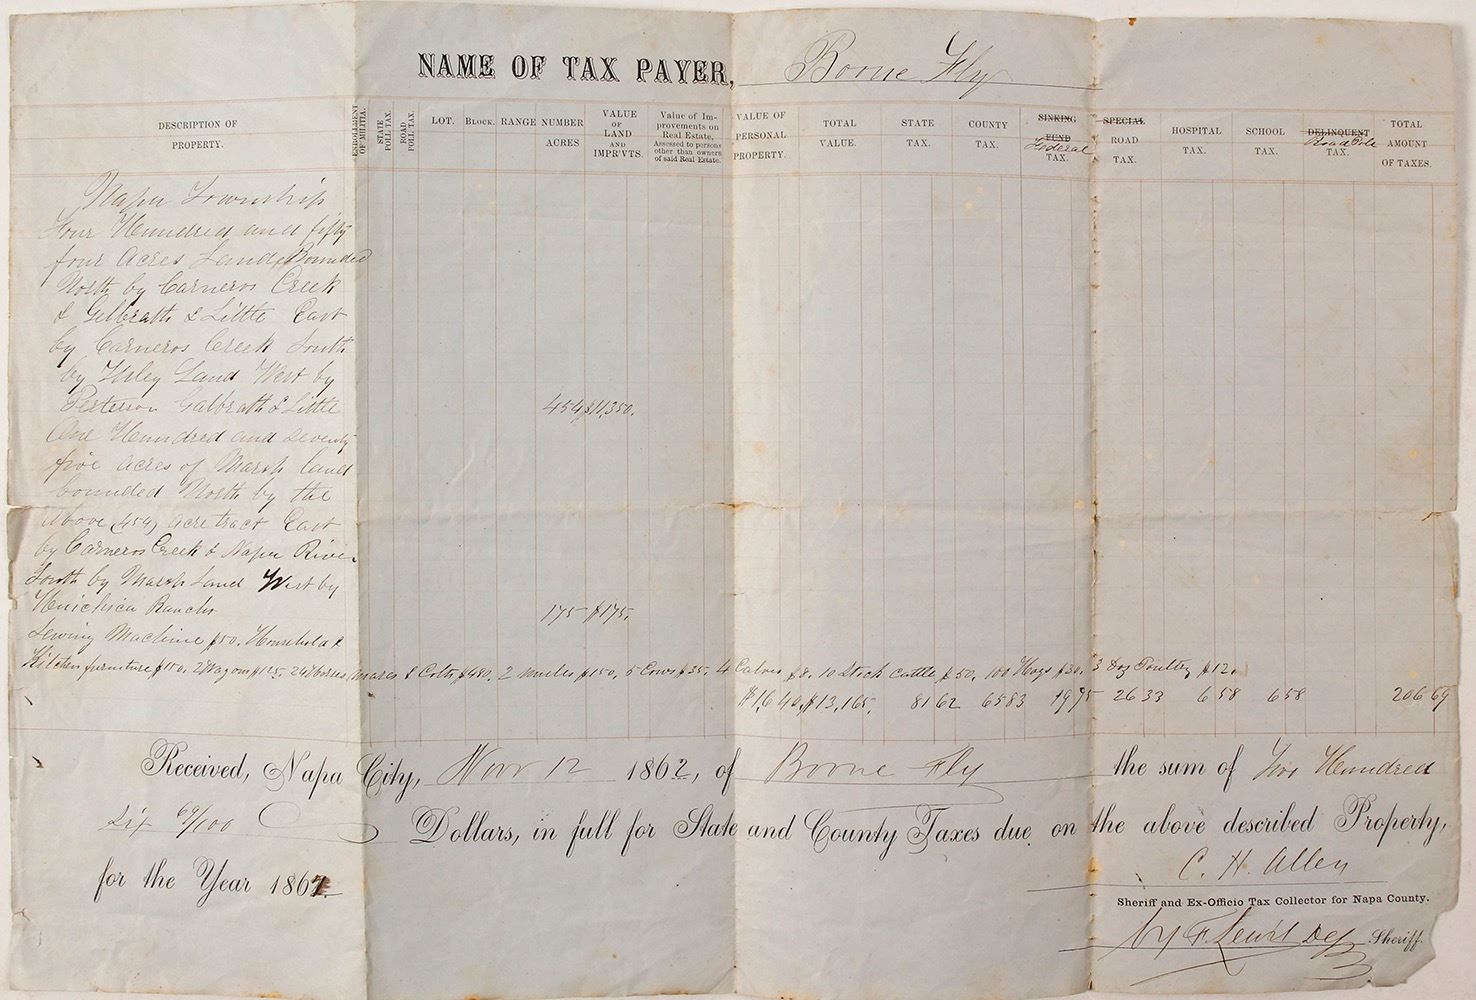 NAME OF TAX PAYER, Boone Fly
DESCRIPTION OF PROPERTY.
ENROLLMENT OF MILITIA.
STATE POLL TAX.
ROAD POLL TAX.
LOT.
BLOCK.
RANGE
NUMBER ACRES
VALUE OF LAND AND IMPR'VTS.
Value of Improvements on Real Estate, Assessed to persons other than owners of said Real Estate.
VALUE OF PERSONAL PROPERTY.
TOTAL VALUE.
STATE TAX.
COUNTY TAX.
SINKING FUND Federal TAX.
SPECIAL ROAD TAX.
HOSPITAL TAX.
SCHOOL TAX.
DELINQUENT Road Pole TAX.
TOTAL AMOUNT OF TAXES.
Napa Township
Four Hundred and fifty
four Acres Land Bounded
North by Carneros Creek
& Gilbrath & Little East
by Carneros Creek South
by Land West by
Galbrath & Little 454 $11,350.
One Hundred and Seventy
five acres of Marsh land
bounded North by the
above (454) acre tract East
by Carneros Creek & Napa River
South by Marsh Land West by
Huichica Rancho 175 $175.
Sewing Machine $50. Household &
Kitchen furniture $150. 2 Wagons $125. 24 Horses Mares & Colts $480. 2 mules $150. 5 Cows $35. 4 Calves $8. 10 Stock cattle $50. 100 Hogs $30. 3 Doz Poultry $12.
$1,640. $13,165. 81 62 65 83 19 75 26 33 6 58 6 58 206 69
Received, Napa City, Nov 12 1862, of Boone Fly the sum of Two Hundred
Six 69/100 Dollars, in full for State and County Taxes due on the above described Property,
for the Year 1862.
C. H. Allen
Sheriff and Ex-Officio Tax Collector for Napa County.
by F. Lewis Dep Sheriff.